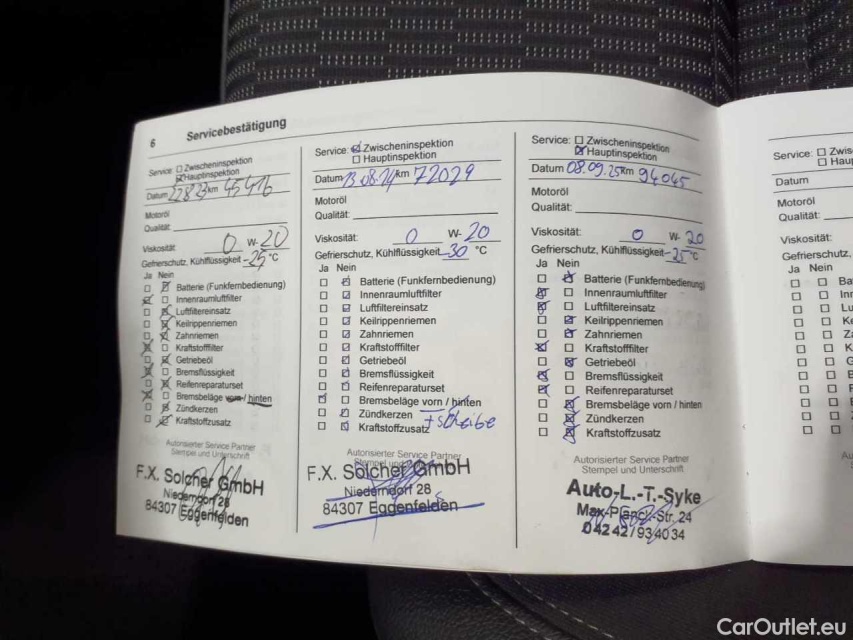 6
Servicebestätigung
Service: Zwischeninspektion
Hauptinspektion
Datum 22.8.23 km 45416
Motoröl
Qualität:
Viskosität: 0 W-20
Gefrierschutz, Kühlflüssigkeit -25 °C
Ja Nein
Batterie (Funkfernbedienung)
Innenraumluftfilter
Luftfiltereinsatz
Keilrippenriemen
Zahnriemen
Kraftstofffilter
Getriebeöl
Bremsflüssigkeit
Reifenreparaturset
Bremsbeläge vorn / hinten
Zündkerzen
Kraftstoffzusatz
Autorisierter Service Partner
Stempel und Unterschrift
F.X. Solcher GmbH
Niederndorf 28
84307 Eggenfelden
Service: Zwischeninspektion
Hauptinspektion
Datum 13.08.24 km 72029
Motoröl
Qualität:
Viskosität: 0 W-20
Gefrierschutz, Kühlflüssigkeit -30 °C
Ja Nein
Batterie (Funkfernbedienung)
Innenraumluftfilter
Luftfiltereinsatz
Keilrippenriemen
Zahnriemen
Kraftstofffilter
Getriebeöl
Bremsflüssigkeit
Reifenreparaturset
Bremsbeläge vorn / hinten
Zündkerzen
Kraftstoffzusatz + Scheibe
Autorisierter Service Partner
Stempel und
F.X. Solcher GmbH
Niederndorf 28
84307 Eggenfelden
Service: Zwischeninspektion
Hauptinspektion
Datum 08.09.25 km 94045
Motoröl
Qualität:
Viskosität: 0 W-20
Gefrierschutz, Kühlflüssigkeit -25 °C
Ja Nein
Batterie (Funkfernbedienung)
Innenraumluftfilter
Luftfiltereinsatz
Keilrippenriemen
Zahnriemen
Kraftstofffilter
Getriebeöl
Bremsflüssigkeit
Reifenreparaturset
Bremsbeläge vorn / hinten
Zündkerzen
Kraftstoffzusatz
Autorisierter Service Partner
Stempel und Unterschrift
Auto-L.-T.-Syke
Max-Planck-Str. 24
04242/934034
Service: Zwis
Haup
Datum
Motoröl
Qualität:
Viskosität:
Gefrierschutz,
Ja Nein
Ba
Inn
Lu
Ke
Za
Kr
Ge
Br
Re
Br
Zü
Kr
CarOutlet.eu